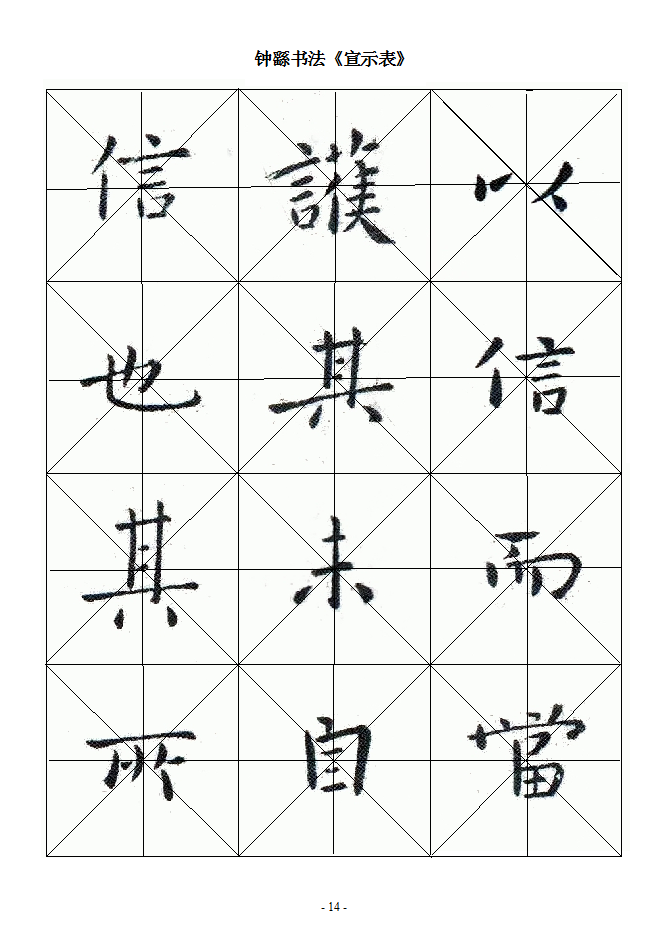 钟繇书法《宣示表》
以信而當
護其未自
信也其所
- 14 -